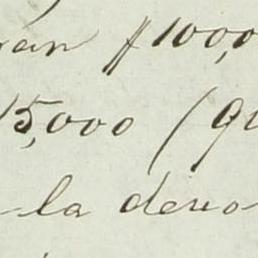 rán $100,0
15,000 (Qu
la deno